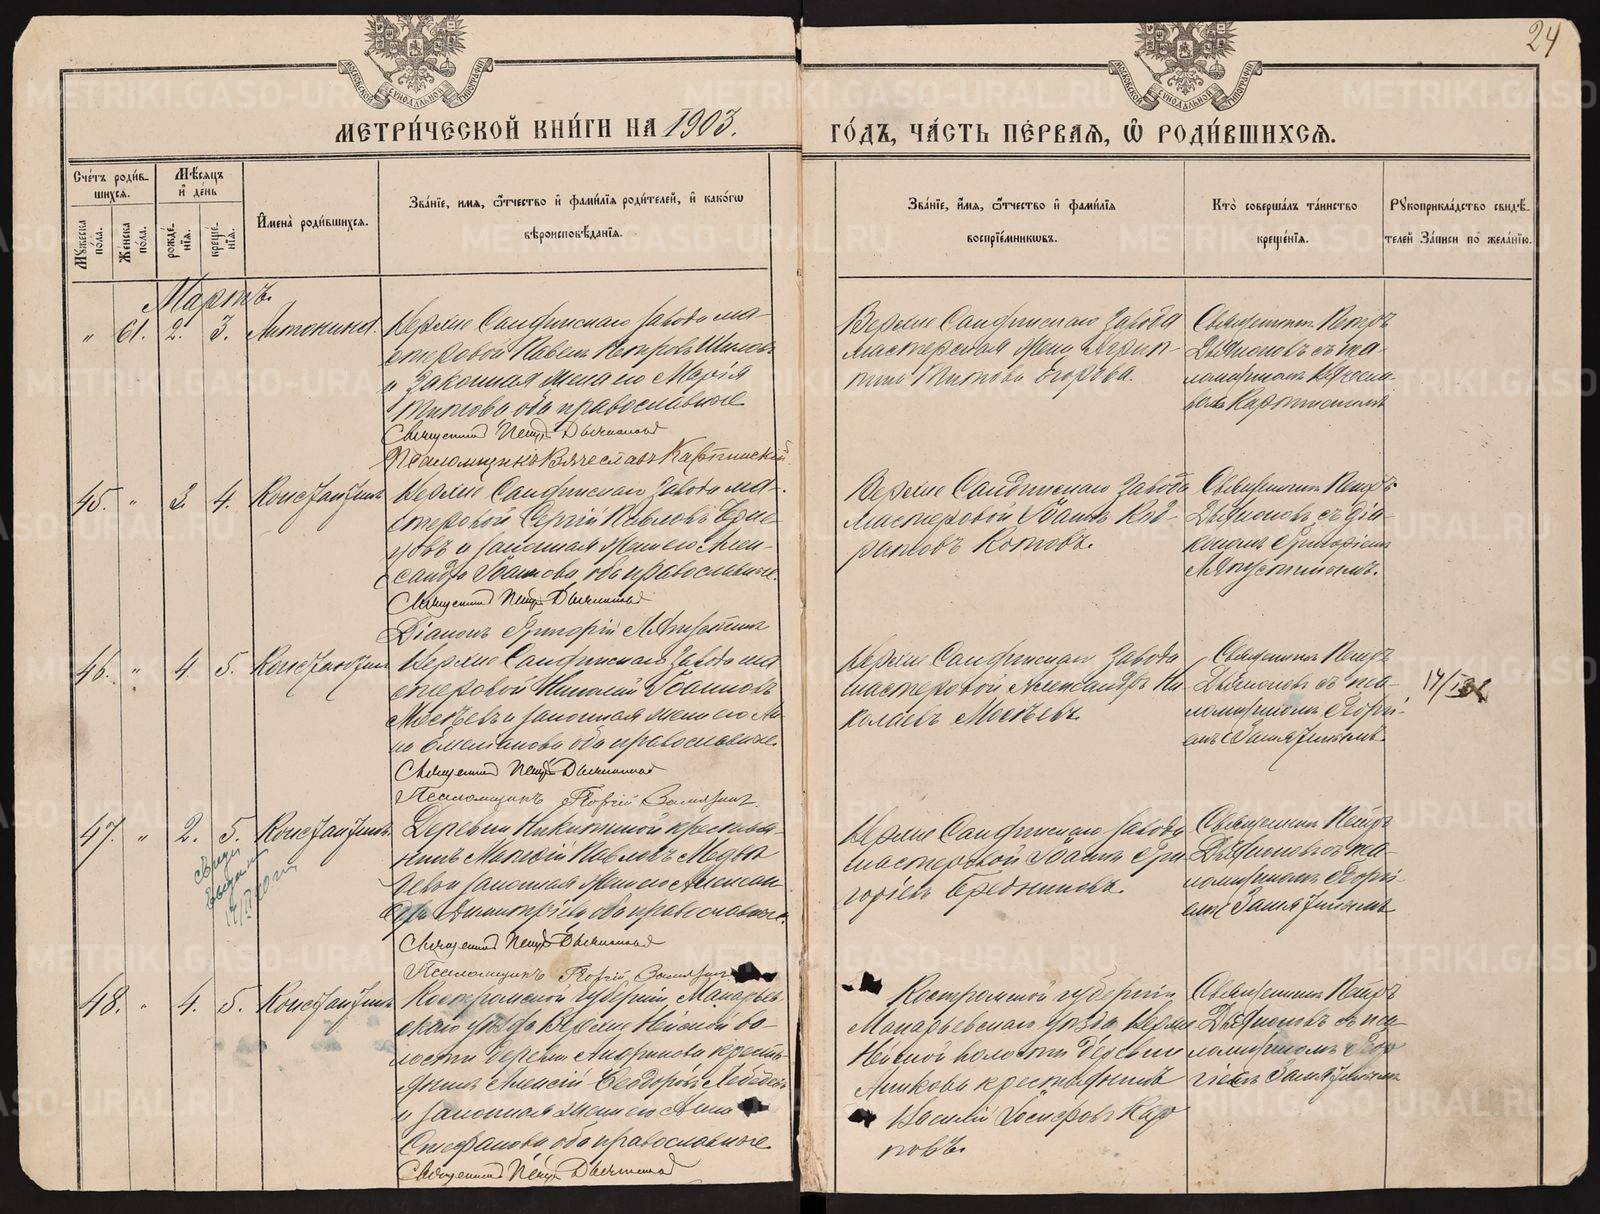 24
МЕТРИЧЕСКОЙ КНИГИ НА 1903.
ГОДЪ, ЧАСТЬ ПЕРВАЯ, Ѡ РОДИВШИХСЯ.
Счетъ родив-
шихся.
Мужеска пола.
Женска пола.
Мѣсяцъ и день
рожде-
нія.
креще-
нія.
Имена родившихся.
Званіе, имя, ѿчество и фамилія родителей, и какогѡ
вѣроисповѣданія.
Званіе, имя, ѿчество и фамилія
воспріемникѡвъ.
Кто совершалъ таинство
крещенія.
Рукоприкладство свидѣ-
телей записи по желанію.
Мартъ.
" 61. 2. 3. Антонина
Верхне Салдинскаго завода ма-
стеровой Павелъ Петровъ Шиловъ
и законная жена его Марія
Титова оба православные
Священникъ Петръ Дьяконовъ
Псаломщикъ Вячеславъ Карпинскій
Верхне Салдинскаго завода
мастерская жена Агрип-
пина Титова Егорова.
Священникъ Петръ
Дьяконовъ съ пса-
ломщикомъ Вячесла-
вомъ Карпинскимъ
45. " 3 4. Константинъ
Верхне Салдинскаго завода ма-
стеровой Сергій Павловъ
и законная жена его Алек-
сандра Іоаннова, оба православные.
Священникъ Петръ Дьяконовъ
Діаконъ Григорій Ляпустинъ
Верхне Салдинскаго завода
мастеровой Іоаннъ
Котовъ.
Священникъ Петръ
Дьяконовъ съ діа-
кономъ Григоріемъ
Ляпустинымъ.
46. " 4. 5. Константинъ
Верхне Салдинскаго завода ма-
стеровой Николай Іоанновъ
и законная жена его Ан-
на Емельянова оба православные.
Священникъ Петръ Дьяконовъ
Псаломщикъ Георгій
Верхне Салдинскаго завода
мастеровой Александръ Ни-
колаевъ
Священникъ Петръ
Дьяконовъ съ пса-
ломщикомъ Георгі-
емъ
47. " 2. 5. Константинъ
Деревни Никитиной крестья-
нинъ Павловъ Медвѣ-
девъ и законная жена его Алексан-
дра Димитріева оба православные.
Священникъ Петръ Дьяконовъ
Псаломщикъ Георгій
Верхне Салдинскаго завода
мастерской Іоаннъ Гри-
горіевъ
Священникъ Петръ
Дьяконовъ съ пса-
ломщикомъ Георгі-
емъ
48. " 4. 5. Константинъ
Костромской губерніи, Макарьев-
скаго уѣзда Верхне Нейской во-
лости деревни кресть-
янинъ Алексій Ѳеодоровъ Лебедевъ
и законная жена его Анна
Стефанова оба православные
Священникъ Петръ Дьяконовъ
Костромской губерніи
Макарьевскаго уѣзда Верхне
Нейской волости деревни
крестьянинъ
Василій Іосифовъ Кар-
повъ.
Священникъ Петръ
Дьяконовъ съ пса-
ломщикомъ Геор-
гіемъ